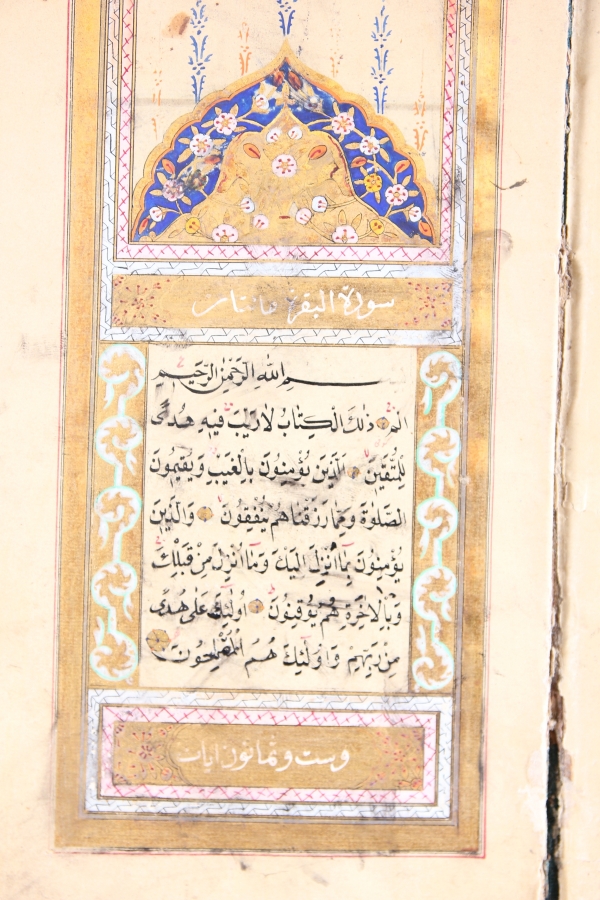 سورة البقرة مائتان
بسم الله الرَّحْمٰنِ الرَّحِيمِ
الم ذٰلِكَ الْكِتَابُ لَا رَيْبَ فِيهِ هُدًى
لِلْمُتَّقِينَ اَلَّذِينَ يُؤْمِنُونَ بِالْغَيْبِ وَيُقِيمُونَ
الصَّلٰوةَ وَمِمَّا رَزَقْنَاهُمْ يُنْفِقُونَ وَالَّذِينَ
يُؤْمِنُونَ بِمَا اُنْزِلَ اِلَيْكَ وَمَا اُنْزِلَ مِنْ قَبْلِكَ
وَبِالْاٰخِرَةِ هُمْ يُوقِنُونَ اُولٰئِكَ عَلٰى هُدًى
مِنْ رَبِّهِمْ وَاُولٰئِكَ هُمُ الْمُفْلِحُونَ
وست وثمانون ايات